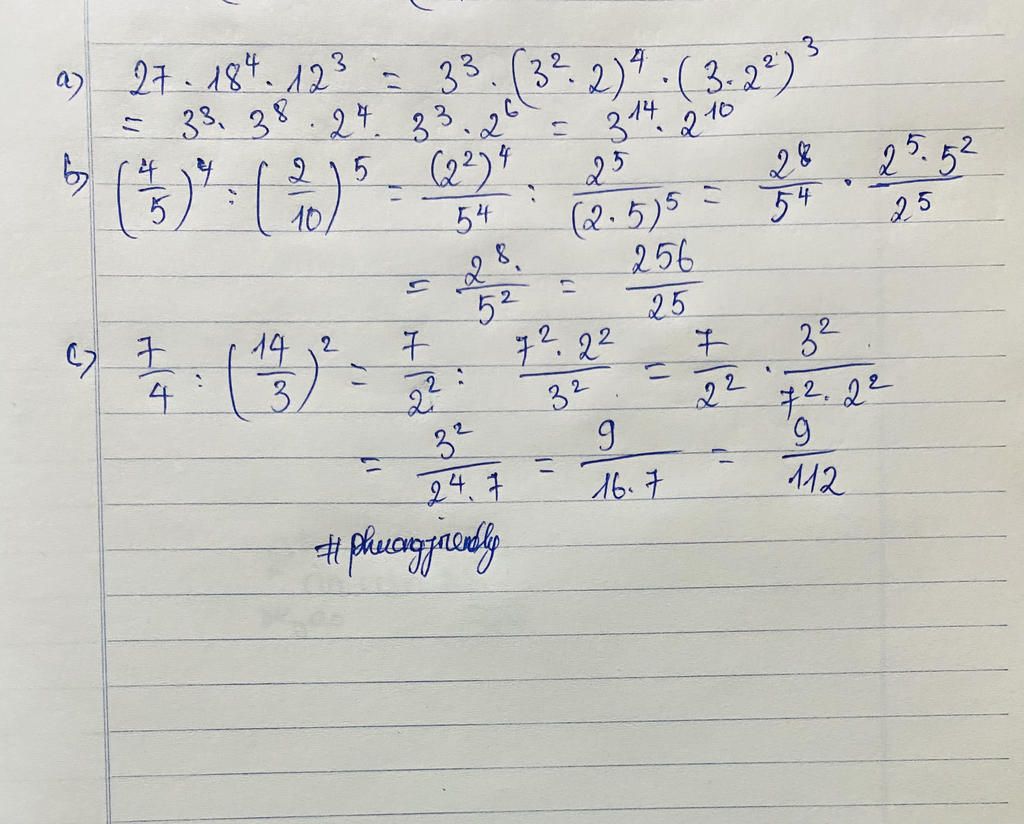 a) 27 · 18⁴ · 12³ = 3³ · (3² · 2)⁴ · (3 · 2²)³
= 3³ · 3⁸ · 2⁴ · 3³ · 2⁶ = 3¹⁴ · 2¹⁰
b) (4/5)⁴ : (2/10)⁵ = (2²)⁴/5⁴ : 2⁵/(2 · 5)⁵ = 2⁸/5⁴ · 2⁵ · 5²/2⁵
= 2⁸·/5² = 256/25
c) 7/4 : (14/3)² = 7/2² : 7² · 2²/3² = 7/2² · 3²/7² · 2²
= 3²/2⁴ · 7 = 9/16 · 7 = 9/112